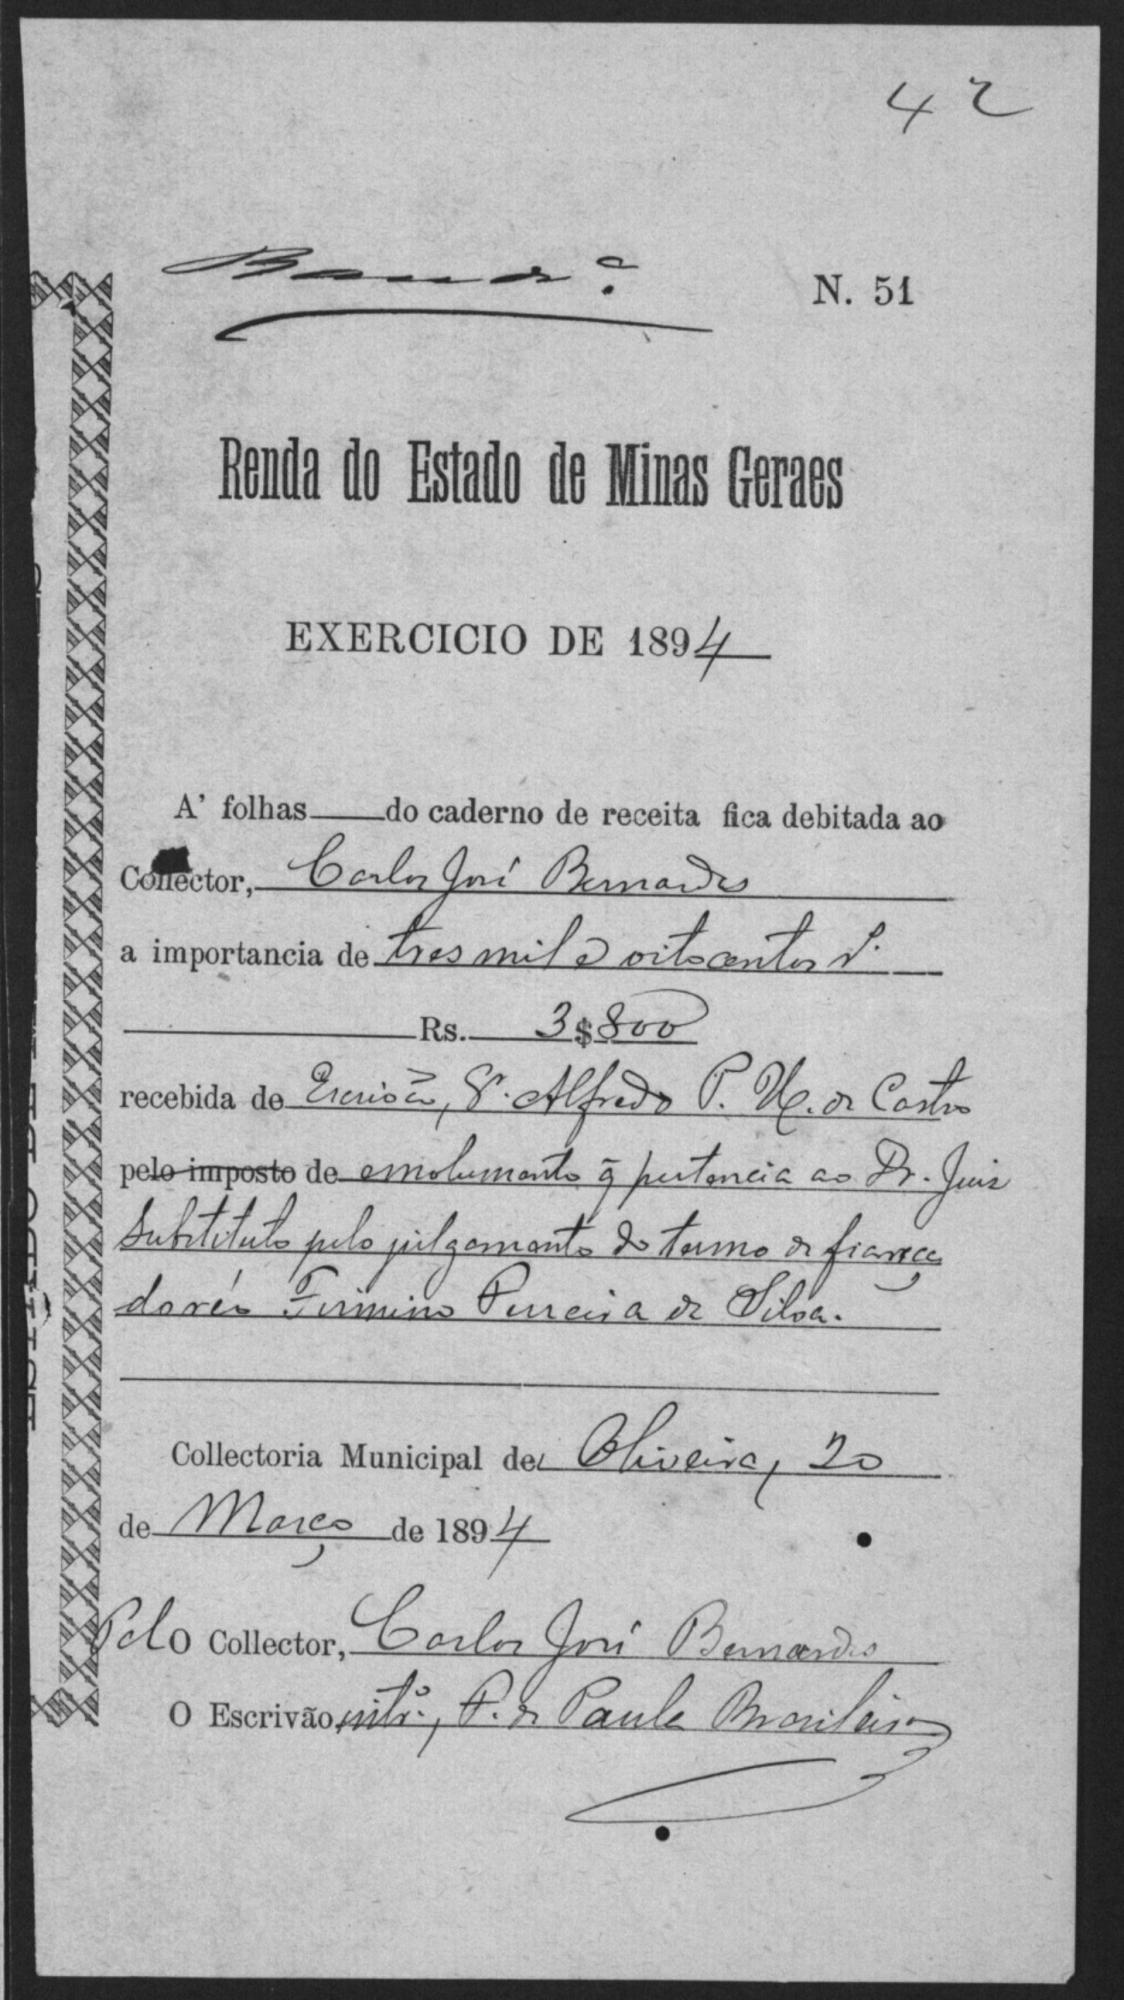 42
N. 51
Renda do Estado de Minas Geraes
EXERCICIO DE 1894
A' folhas do caderno de receita fica debitada ao
Collector, Carlos José Bernardes
a importancia de tres mil e oitocentos rs.
Rs. 3$800
recebida de Escrivão, Sr. Alfredo P. de Castro
pelo imposto de emolumento q̃ pertencia ao Dr. Juiz
Substituto pelo julgamento do termo de fiança
do réo Firmino Ferreira da Silva.
Collectoria Municipal de Oliveira, 20
de Março de 1894
Pelo Collector, Carlos José Bernardes
O Escrivão, intº., F. de Paula Brasileiro